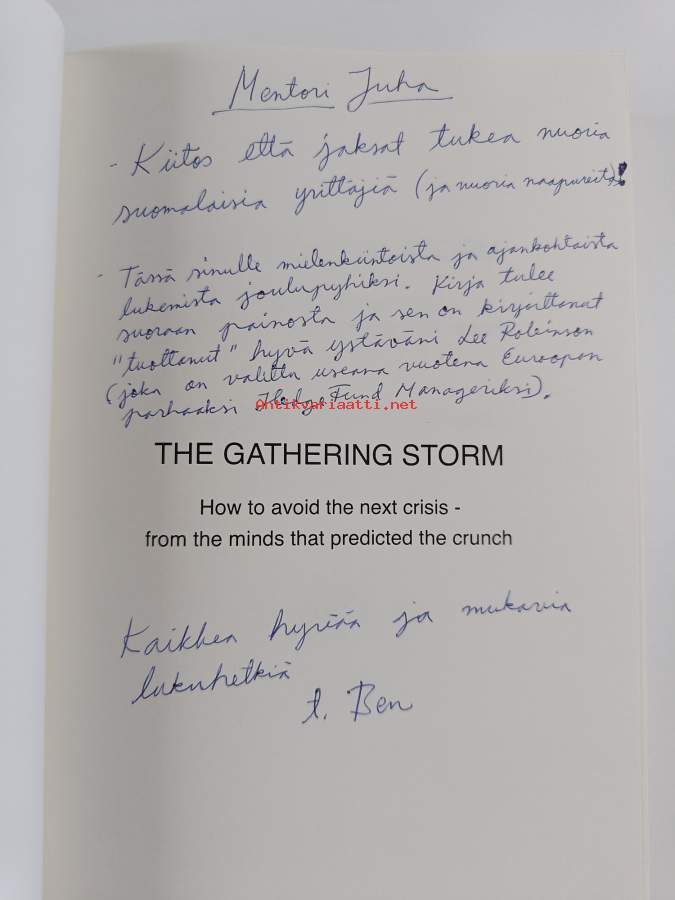 Mentori Juha
- Kiitos että jaksat tukea nuoria
suomalaisia yrittäjiä (ja nuoria naapureita)!
- Tässä sinulle mielenkiintoista ja ajankohtaista
lukemista joulupyhiksi. Kirja tulee
suoraan painosta ja sen on kirjoittanut
"tuottanut" hyvä ystäväni Lee Robinson
(joka on valittu useana vuotena Euroopan
parhaaksi Hedge Fund Manageriksi).
Antikvariaatti.net
THE GATHERING STORM
How to avoid the next crisis -
from the minds that predicted the crunch
Kaikkea hyvää ja mukavia
lukuhetkiä
t. Ben